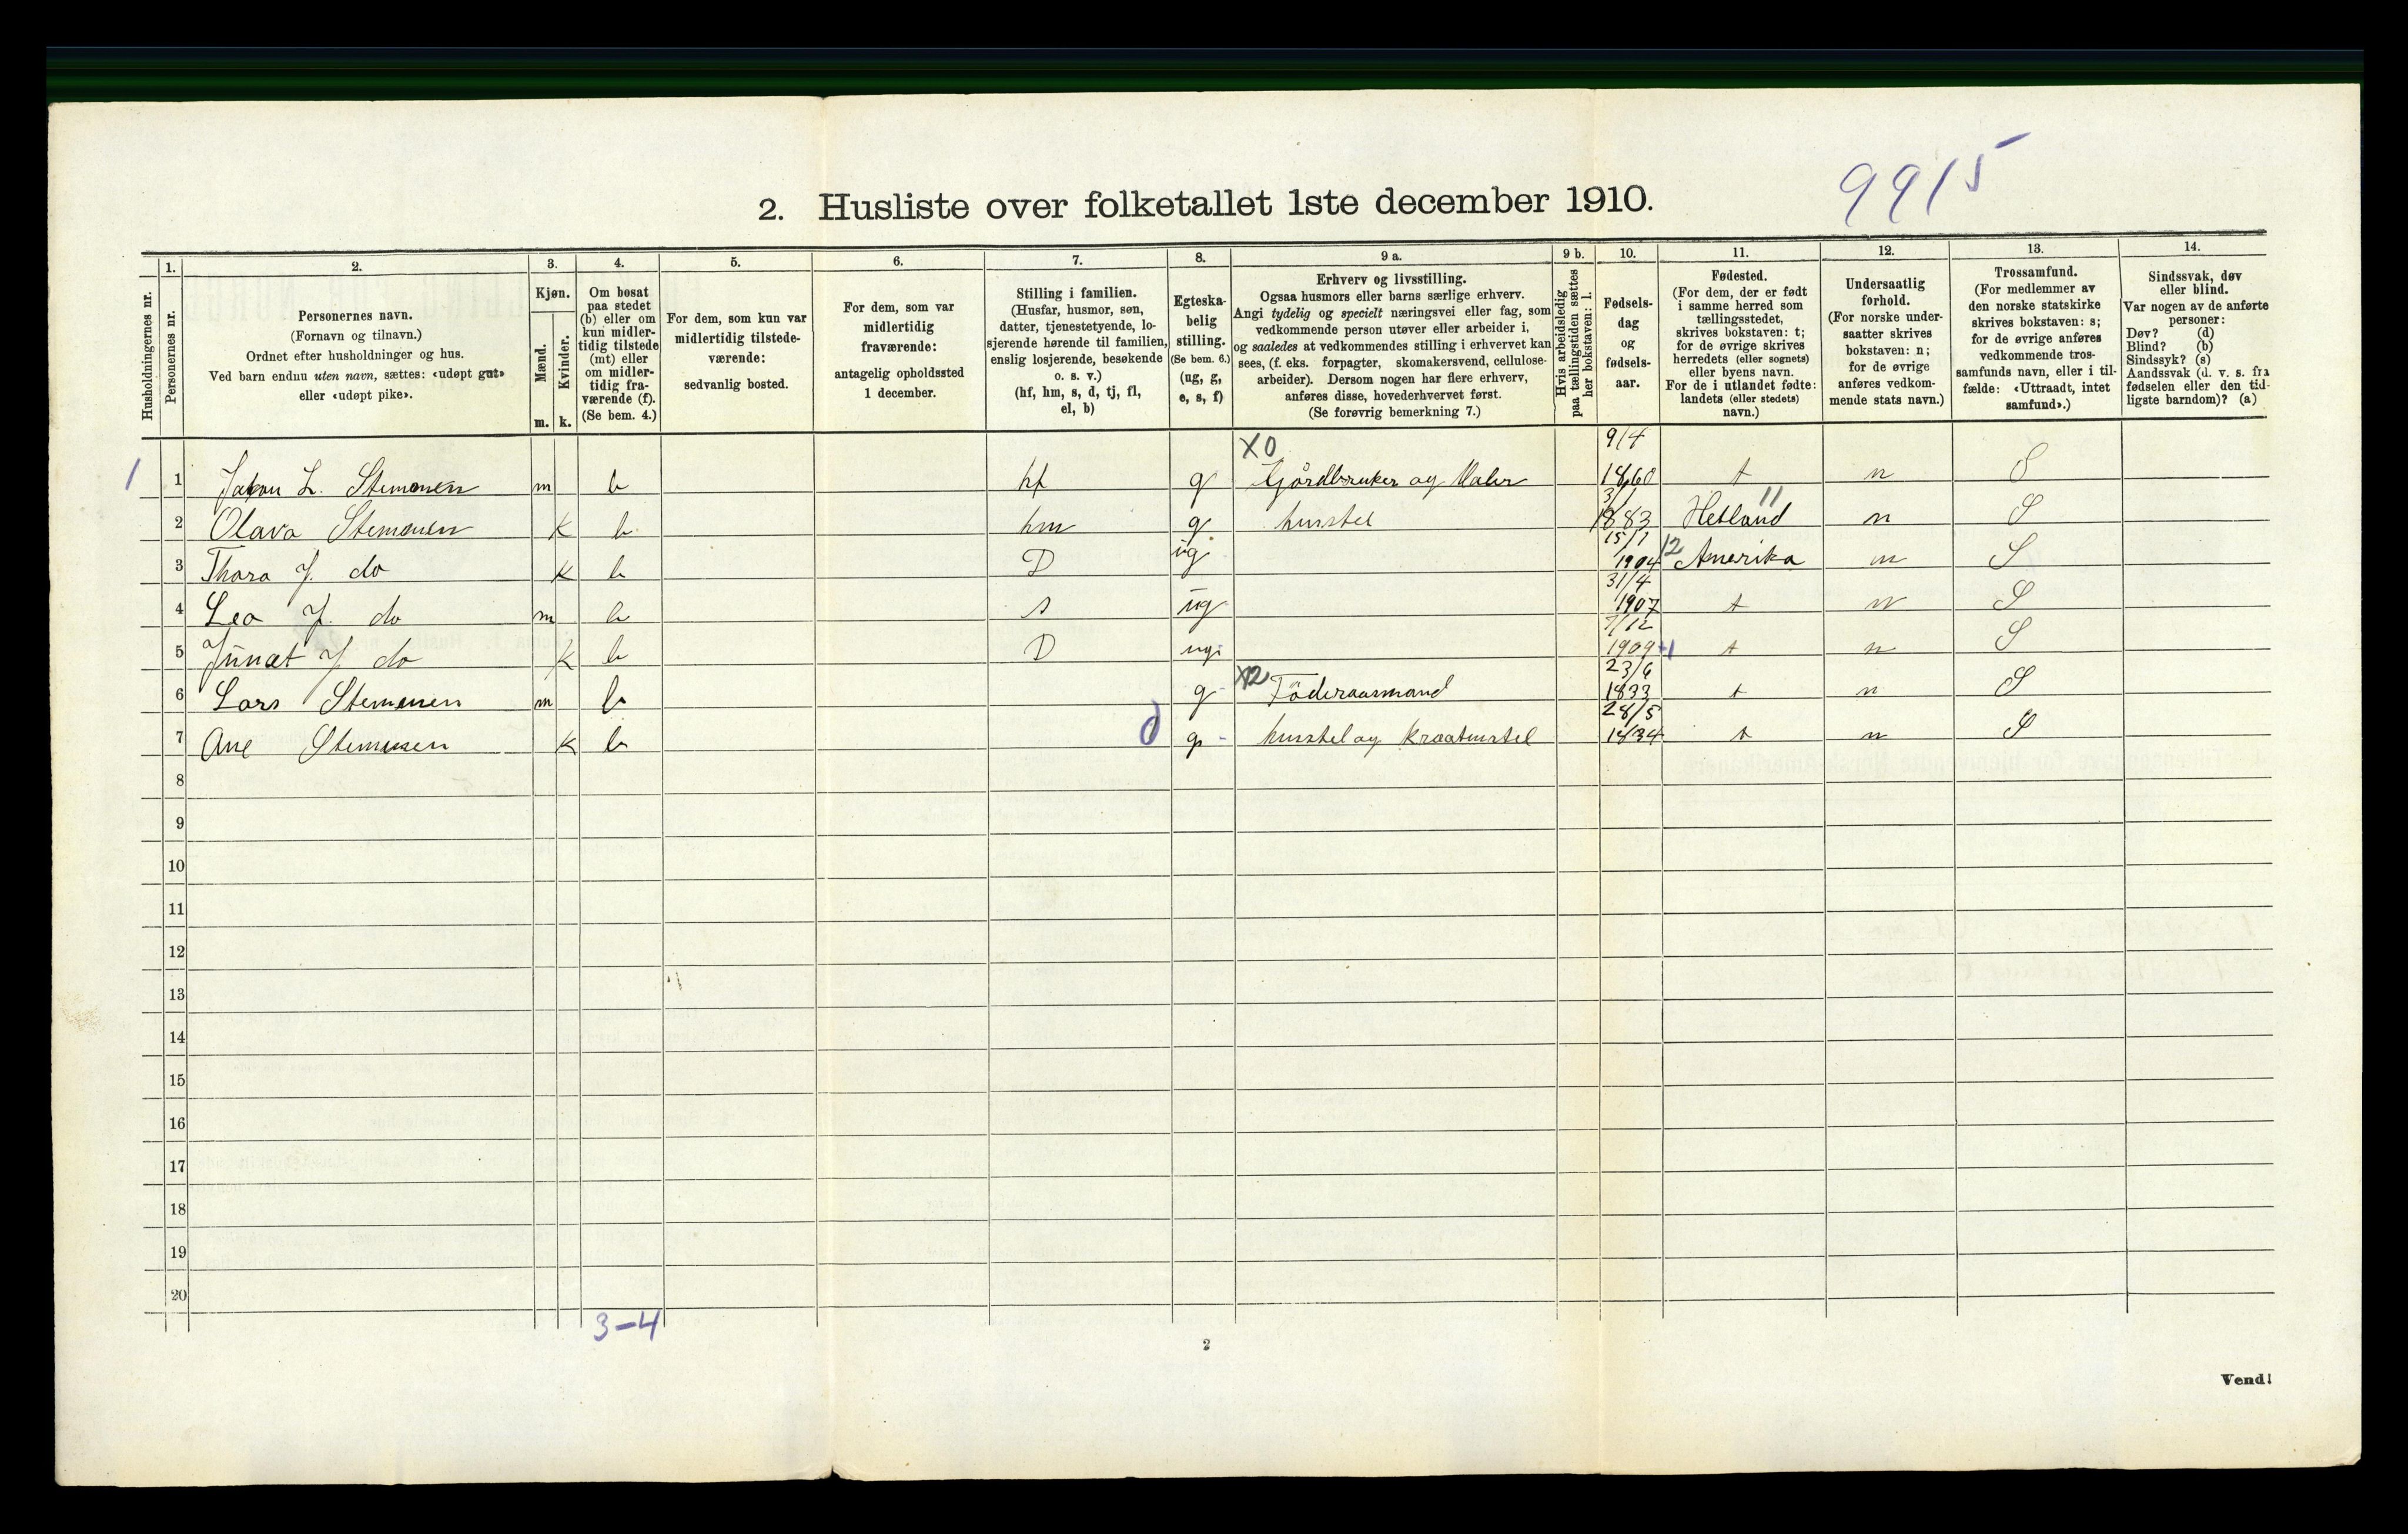 9915
2. Husliste over folketallet 1ste december 1910.
Husholdningernes nr.
1.
Personernes nr.
2.
Personernes navn.
(Fornavn og tilnavn.)
Ordnet efter husholdninger og hus.
Ved barn endnu uten navn, sættes: «udøpt gut»
eller «udøpt pike».
3.
Kjøn.
Mænd.
Kvinder.
m. k.
4.
Om bosat
paa stedet
(b) eller om
kun midler-
tidig tilstede
(mt) eller
om midler-
tidig fra-
værende (f).
(Se bem. 4.)
5.
For dem, som kun var
midlertidig tilstede-
værende:
sedvanlig bosted.
6.
For dem, som var
midlertidig
fraværende:
antagelig opholdssted
1 december.
7.
Stilling i familien.
(Husfar, husmor, søn,
datter, tjenestetyende, lo-
sjerende hørende til familien,
enslig losjerende, besøkende
o. s. v.)
(hf, hm, s, d, tj, fl,
el, b)
8.
Egteska-
belig
stilling.
(Se bem. 6.)
(ug, g,
e, s, f)
9 a.
Erhverv og livsstilling.
Ogsaa husmors eller barns særlige erhverv.
Angi tydelig og specielt næringsvei eller fag, som
vedkommende person utøver eller arbeider i,
og saaledes at vedkommendes stilling i erhvervet kan
sees, (f. eks. forpagter, skomakersvend, cellulose-
arbeider). Dersom nogen har flere erhverv,
anføres disse, hovederhvervet først.
(Se forøvrig bemerkning 7.)
9 b.
Hvis arbeidsledig
paa tællingstiden sættes
her bokstaven: l.
10.
Fødsels-
dag
og
fødsels-
aar.
11.
Fødested.
(For dem, der er født
i samme herred som
tællingsstedet,
skrives bokstaven: t;
for de øvrige skrives
herredets (eller sognets)
eller byens navn.
For de i utlandet fødte:
landets (eller stedets)
navn.)
12.
Undersaatlig
forhold.
(For norske under-
saatter skrives
bokstaven: n;
for de øvrige
anføres vedkom-
mende stats navn.)
13.
Trossamfund.
(For medlemmer av
den norske statskirke
skrives bokstaven: s;
for de øvrige anføres
vedkommende tros-
samfunds navn, eller i til-
fælde: «Uttraadt, intet
samfund».)
14.
Sindssvak, døv
eller blind.
Var nogen av de anførte
personer:
Døv? (d)
Blind? (b)
Sindssyk? (s)
Aandssvak (d. v. s. fra
fødselen eller den tid-
ligste barndom)? (a)
X0 9/4
1 1 L. Stemmen m b hf g Gjårdbruker og Maler 1860 t n S
3/1 11
2 Olava Stemmen K b hm g husstel 1883 Hetland n S
15/7 12
3 Thora J. do K b D ug 1904 Amerika n S
31/4
4 Leo J. do m b s ug 1907 t n S
7/12
5 J do K b D ug 1909 -1 t n S
X2 23/6
6 Lars Stemmen m b g Föderaasmand 1833 t n S
28/5
7 Ane Stemmen K b d g - husstel og Kreaturstel 1834 t n S
8
9
10
11
12
13
14
15
16
17
18
19
20
3-4
2
Vend!